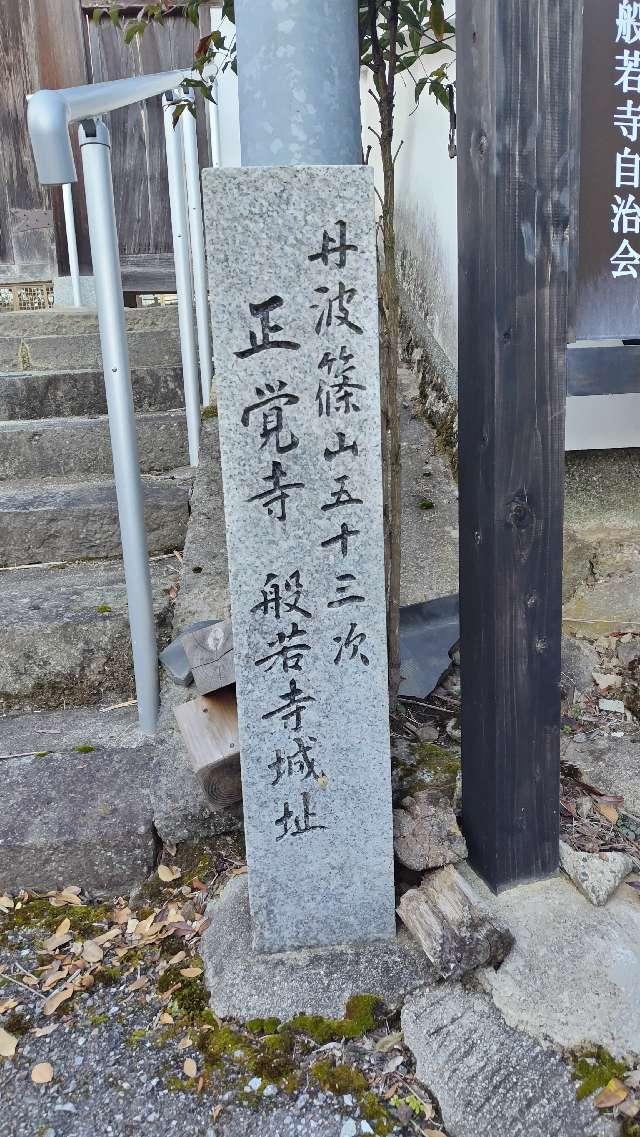 丹波篠山五十三次
正覚寺 般若寺城址
般若寺自治会